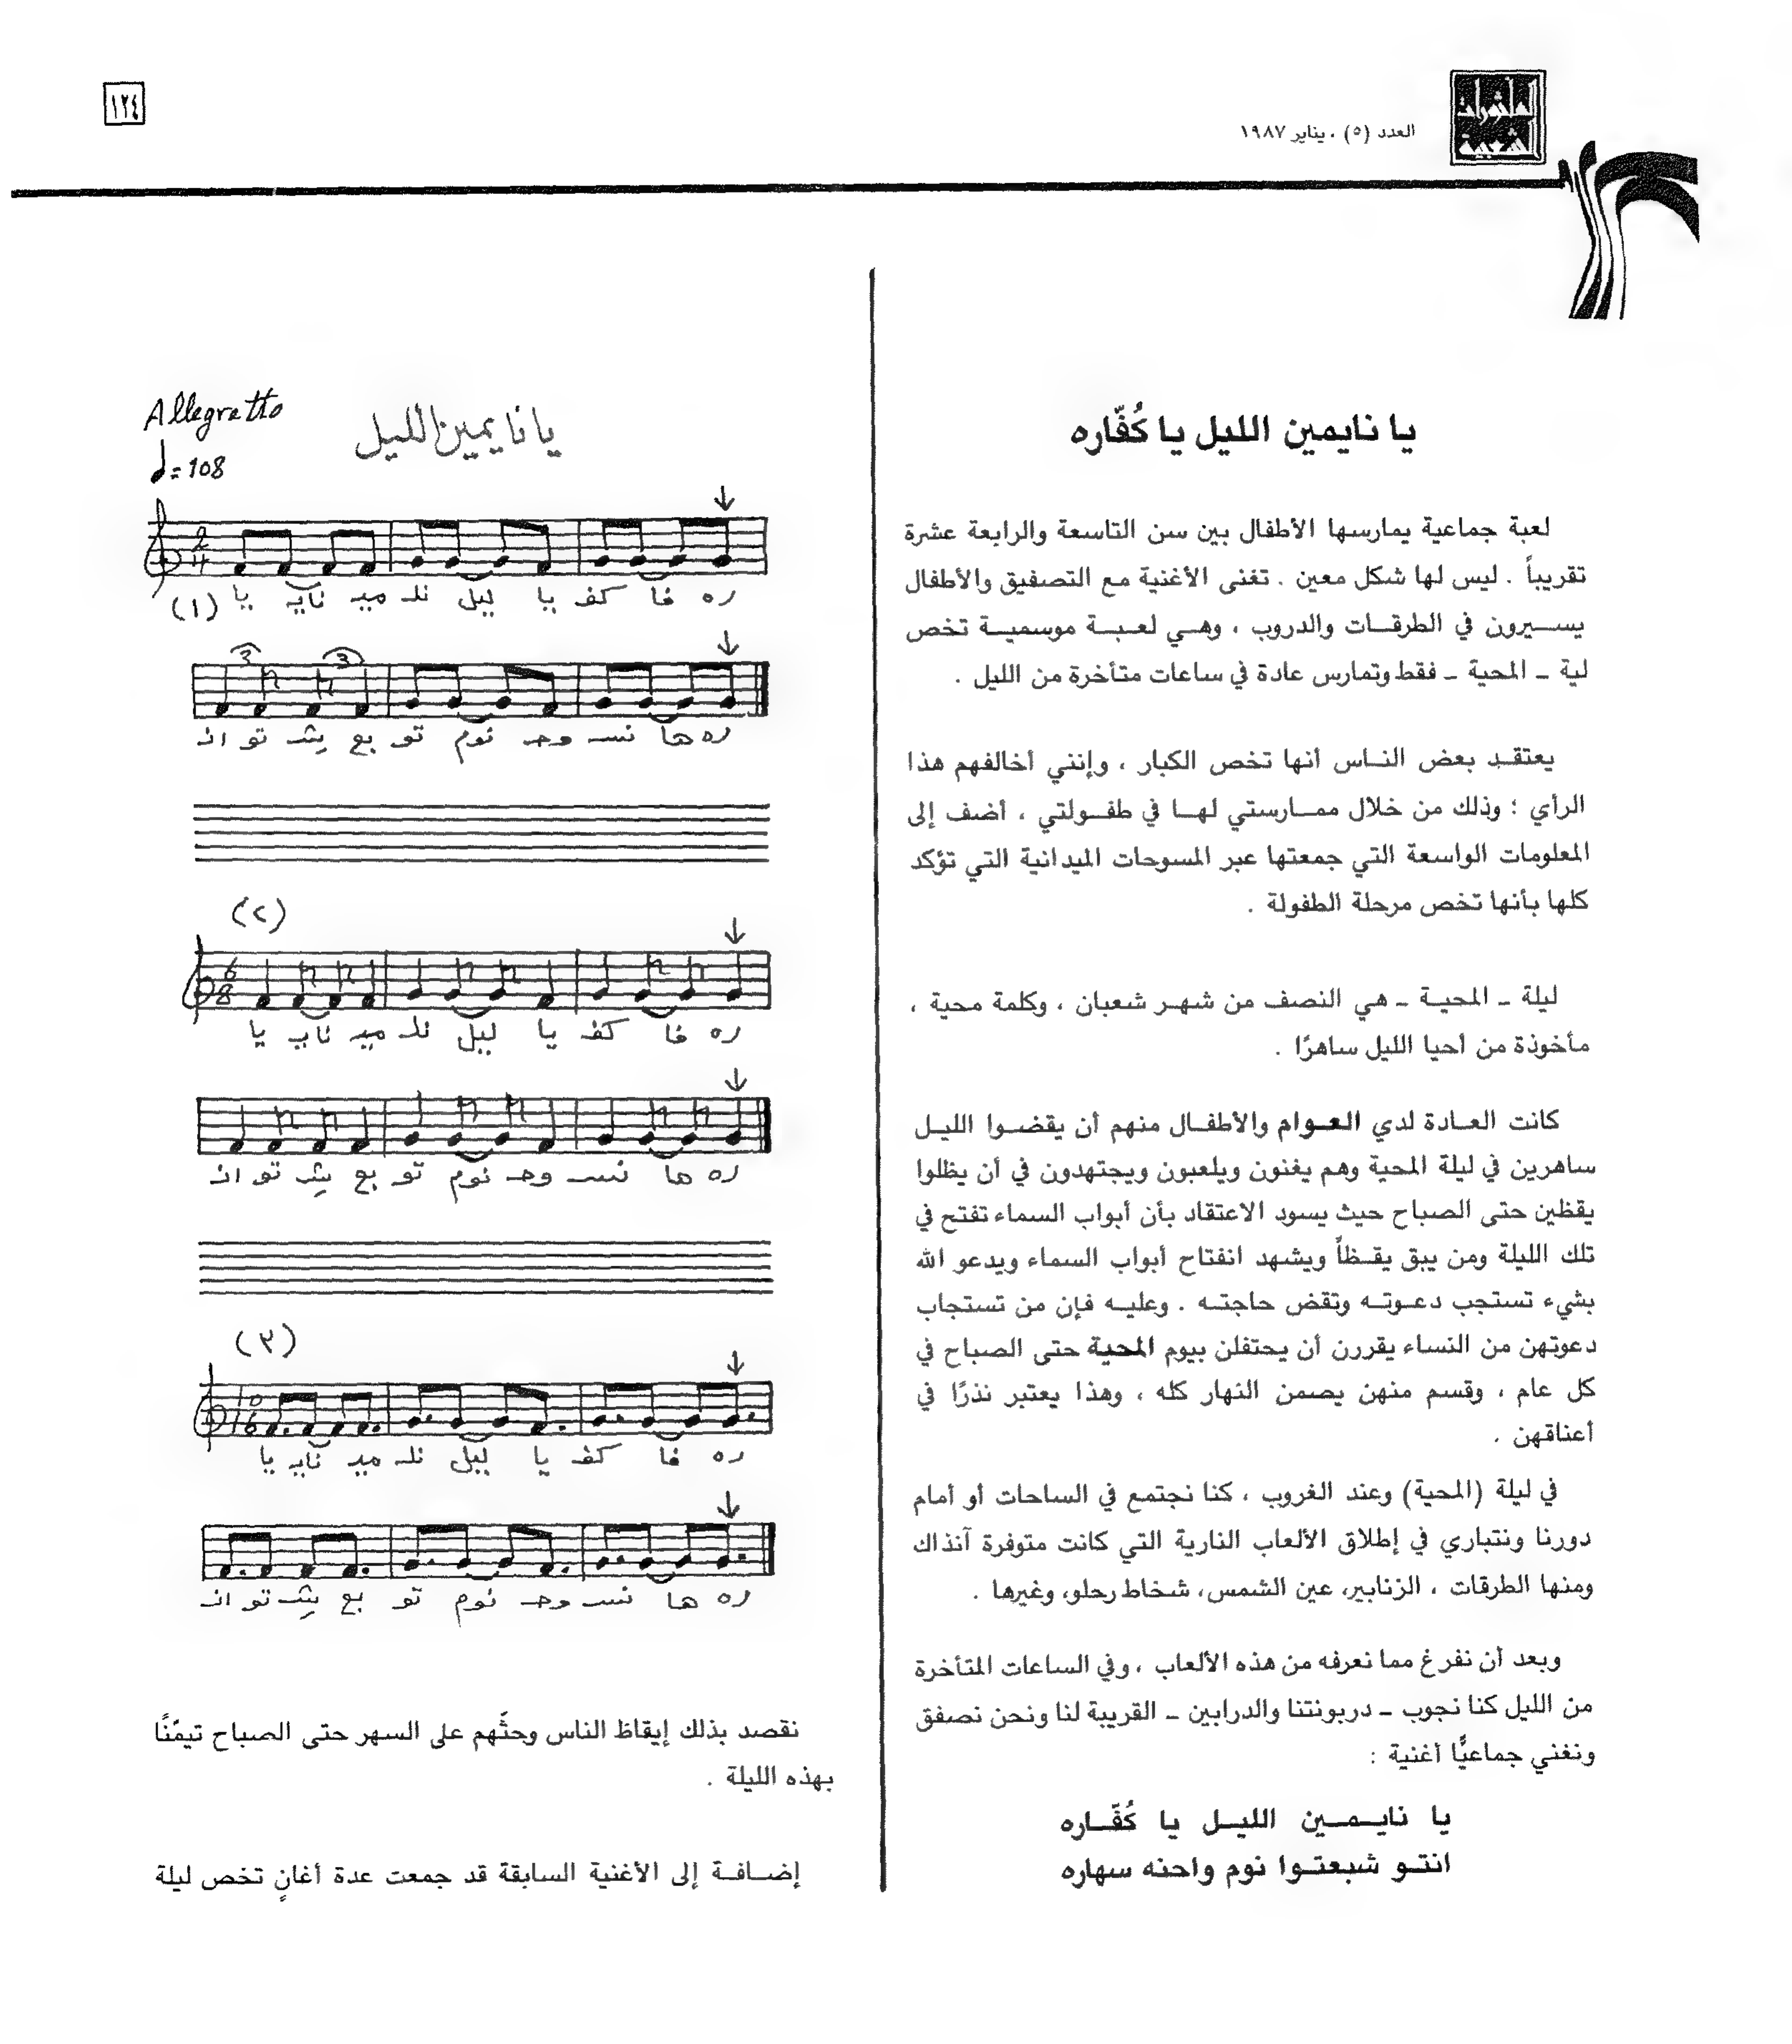 ١٢٤
العدد (٥) ، يناير ١٩٨٧
المأثورات
الشعبية
يا نايمين الليل يا كُفّاره
لعبة جماعية يمارسها الأطفال بين سن التاسعة والرابعة عشرة
تقريباً . ليس لها شكل معين . تغنى الأغنية مع التصفيق والأطفال
يســيرون في الطرقــات والدروب ، وهــي لعـبــة موسميــة تخص
لية ــ المحية ــ فقط وتمارس عادة في ساعات متأخرة من الليل .
يعتقـد بعض النـاس أنها تخص الكبار ، وإنني أخالفهم هذا
الرأي ؛ وذلك من خلال ممــارستي لهــا في طفــولتي ، أضف إلى
المعلومات الواسعة التي جمعتها عبر المسوحات الميدانية التي تؤكد
كلها بأنها تخص مرحلة الطفولة .
ليلة ــ المحيــة ــ هي النصف من شهـر شعبان ، وكلمة محية ،
مأخوذة من أحيا الليل ساهرًا .
كانت العـادة لدي العـوام والأطفـال منهم أن يقضـوا الليـل
ساهرين في ليلة المحية وهم يغنون ويلعبون ويجتهدون في أن يظلوا
يقظين حتى الصباح حيث يسود الاعتقاد بأن أبواب السماء تفتح في
تلك الليلة ومن يبق يقـظاً ويشهد انفتاح أبواب السماء ويدعو الله
بشيء تستجب دعـوتـه وتقض حاجتـه . وعليـه فإن من تستجاب
دعوتهن من النساء يقررن أن يحتفلن بيوم المحية حتى الصباح في
كل عام ، وقسم منهن يصمن النهار كله ، وهذا يعتبر نذرًا في
أعناقهن .
في ليلة (المحية) وعند الغروب ، كنا نجتمع في الساحات أو أمام
دورنا ونتباري في إطلاق الألعاب النارية التي كانت متوفرة آنذاك
ومنها الطرقات ، الزنابير، عين الشمس، شخاط رحلو، وغيرها .
وبعد أن نفرغ مما نعرفه من هذه الألعاب ، وفي الساعات المتأخرة
من الليل كنا نجوب ــ دربونتنا والدرابين ــ القريبة لنا ونحن نصفق
ونغني جماعيًّا أغنية :
يا نايــمــين الليــل يا كُفّــاره
انتـو شبعتـوا نوم واحنه سهاره
Allegretto
يا نايمين الليل
♩= 108
2
4
(١) يا نايـ ميـ نلـ ليل يا كفـ فا ره
3 3
انـ تو شـ بع تو نوم وحـ نسـ ها ره
(٢)
6
8
يا نايـ ميـ نلـ ليل يا كفـ فا ره
انـ تو شـ بع تو نوم وحـ نسـ ها ره
(٣)
10
16
يا نايـ ميـ نلـ ليل يا كفـ فا ره
انـ تو شـ بع تو نوم وحـ نسـ ها ره
نقصد بذلك إيقاظ الناس وحثّهم على السهر حتى الصباح تيمّنًا
بهذه الليلة .
إضــافــة إلى الأغنية السابقة قد جمعت عدة أغانٍ تخص ليلة